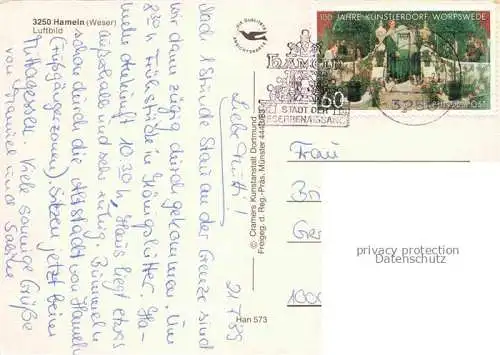 3250 Hameln (Weser)
Luftbild
21.7.89
Liebe Mutti!
Nach 1 Stunde Stau an der Grenze sind
wir dann zügig durchgekommen. Um
8.30 h Frühstück in Königslutter. Ha-
meln Ankunft 10.30 h. Haus liegt etwas
außerhalb und sehr ruhig. Bummeln
schon durch die Altstadt von Hameln
(Fußgängerzonen). Sitzen jetzt beim
Mittagessen. Viele sonnige Grüße
von Manuel und Sabine
© Cramers Kunstanstalt Dortmund
Freigeg. d. Reg.-Präs. Münster 4442/83
Han 573
HAMELN
STADT DER
WESERRENAISSANCE
325
100 JAHRE KÜNSTLERDORF WORPSWEDE
60
DEUTSCHE BUNDESPOST
Frau
Br
Ge
1000
privacy protection
Datenschutz